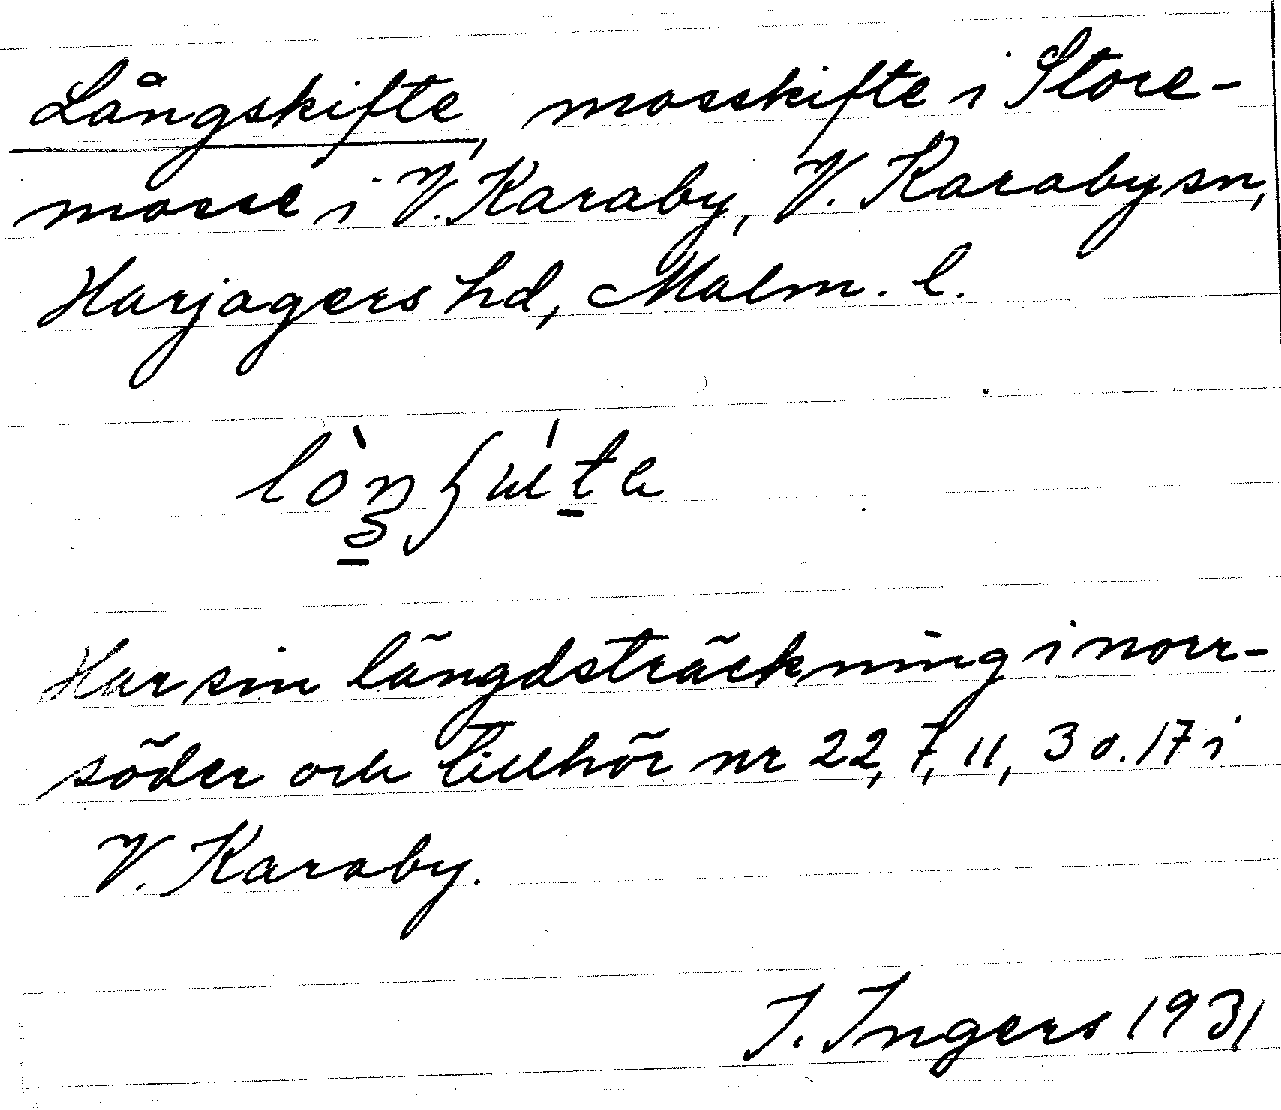 Långskifte, mosskifte i Store-
mosse i V. Karaby, V. Karaby sn,
Harjagers hd, Malm. l.
Har sin längdsträckning i norr-
söder och tillhör nr 22, 7, 11, 3 o. 17 i
V. Karaby.
I. Ingers 1931